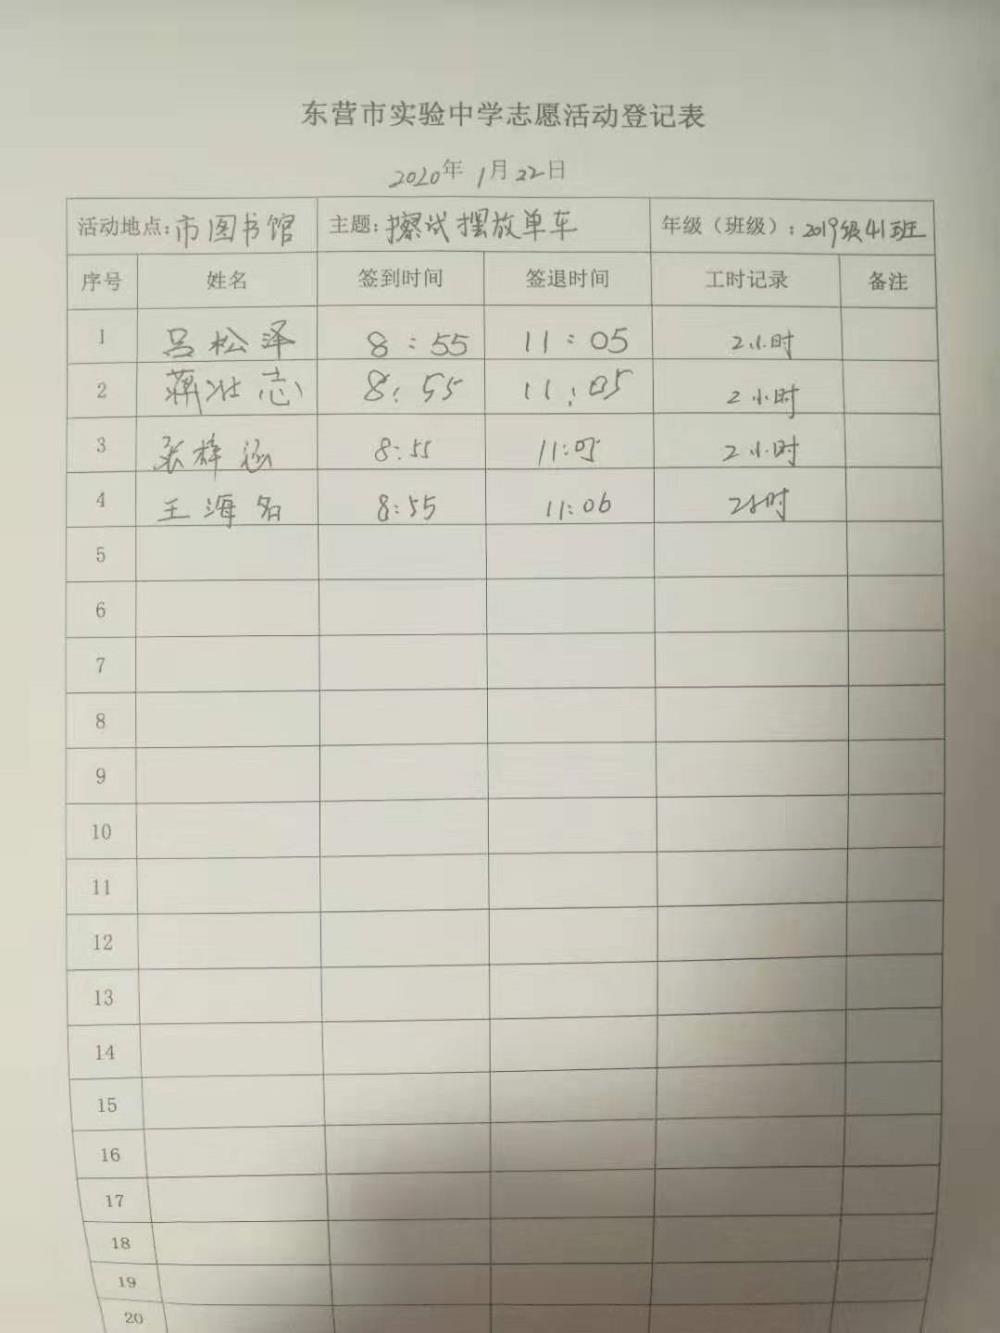 东营市实验中学志愿活动登记表
2020年 1月22日
活动地点:市图书馆 主题:擦试摆放单车 年级（班级）:2019级41班
序号 姓名 签到时间 签退时间 工时记录 备注
1 吕松泽 8:55 11:05 2小时
2 蒋壮志 8:55 11:05 2小时
3 张梓涵 8:55 11:05 2小时
4 王海名 8:55 11:06 2小时
5
6
7
8
9
10
11
12
13
14
15
16
17
18
19
20